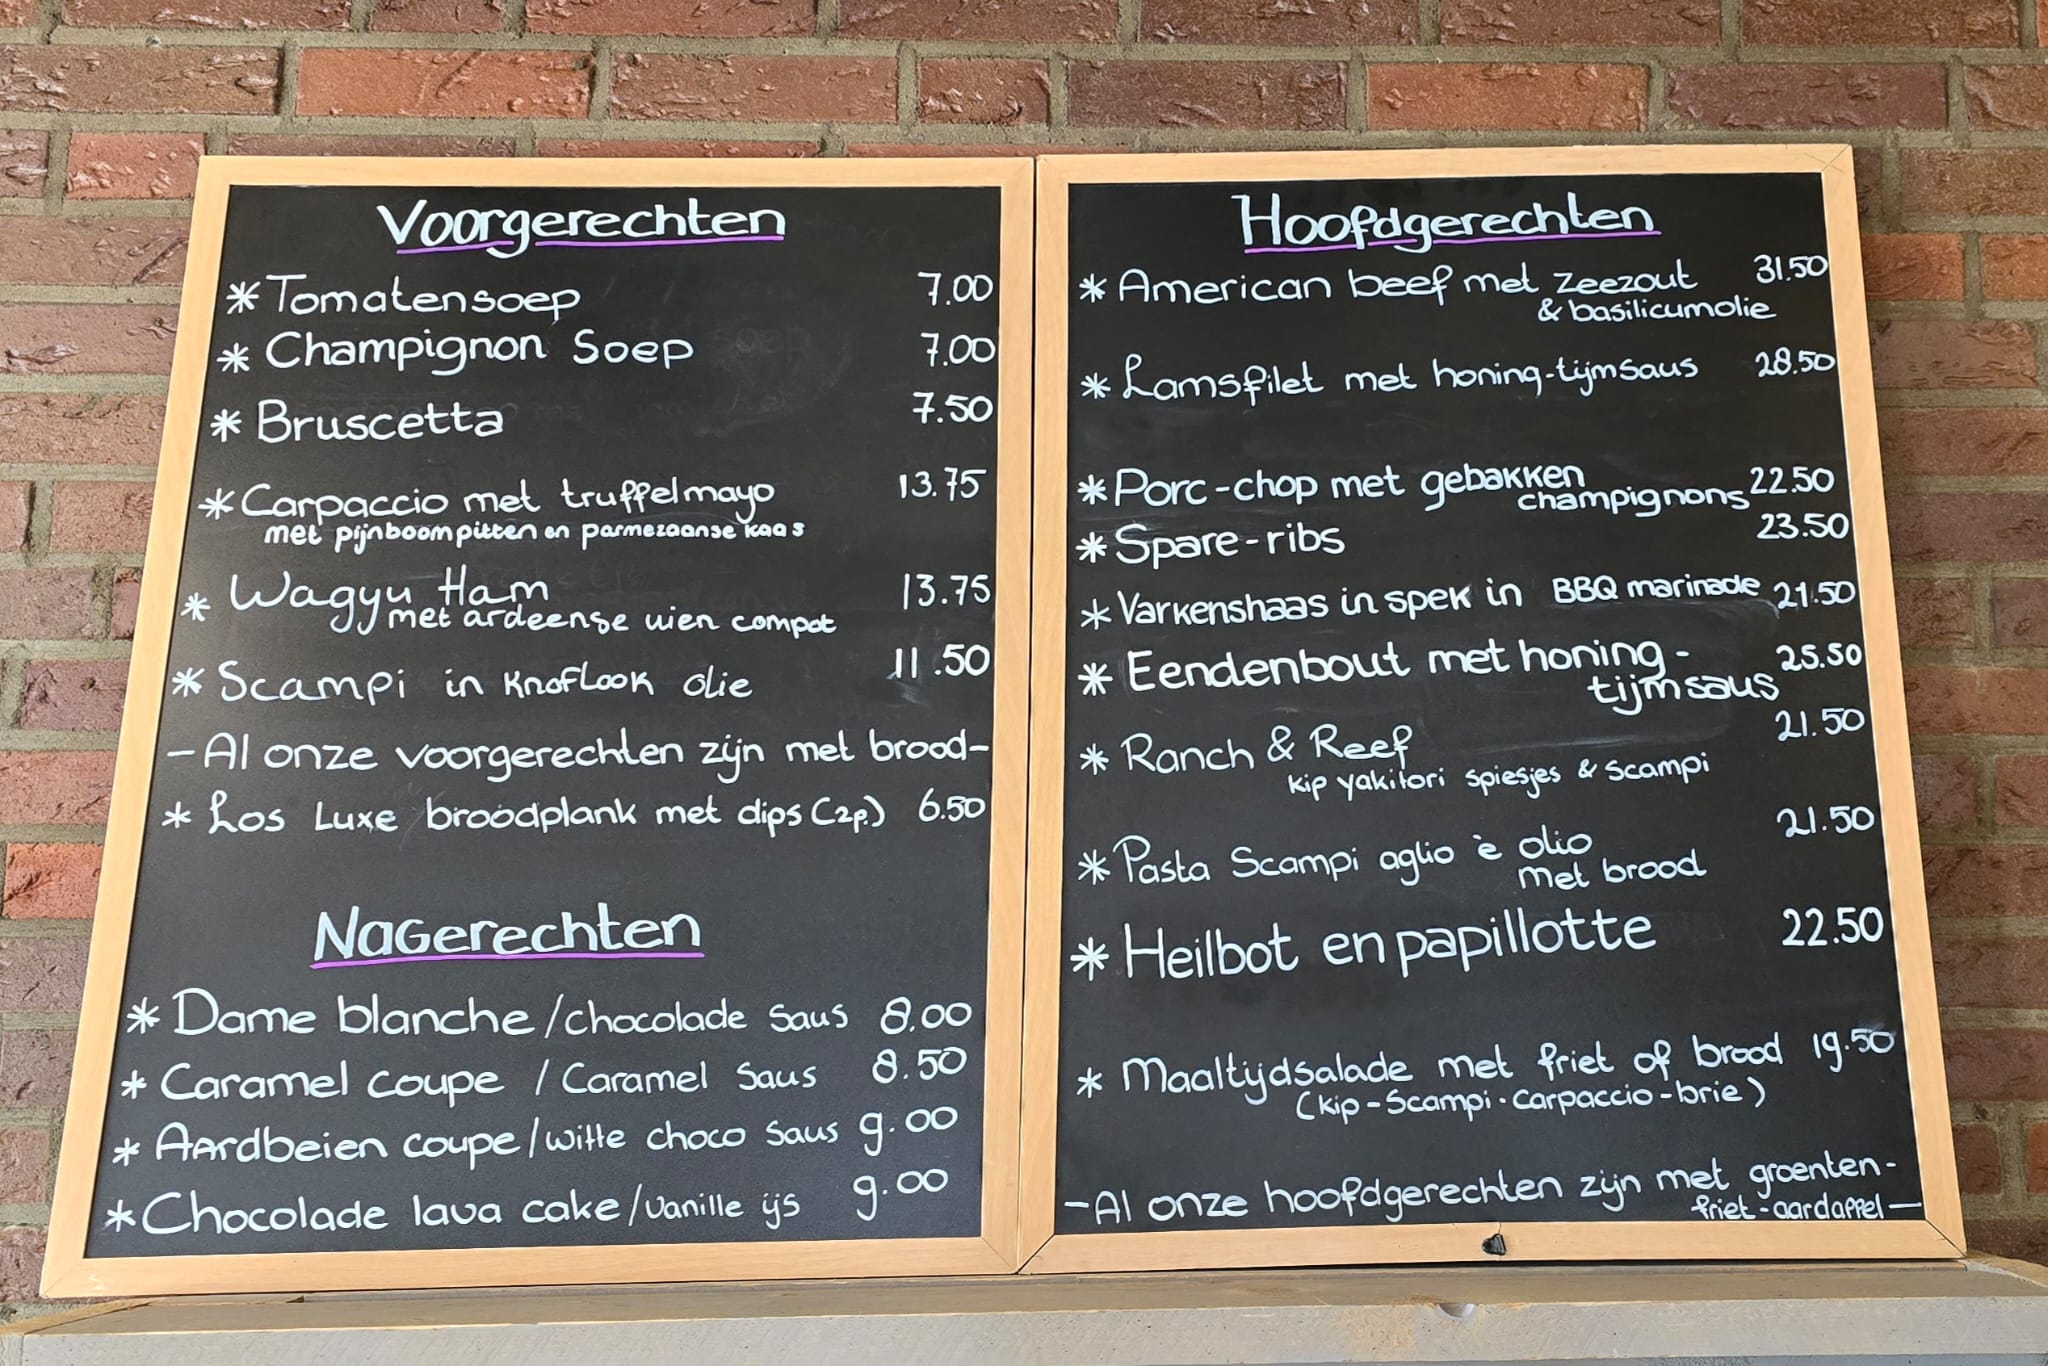 Voorgerechten
* Tomatensoep 7.00
* Champignon Soep 7.00
* Bruscetta 7.50
* Carpaccio met truffelmayo 13.75
met pijnboompitten en parmezaanse kaas
* Wagyu Ham 13.75
met ardeense uien compot
* Scampi in knoflook olie 11.50
- Al onze voorgerechten zijn met brood -
* Los Luxe broodplank met dips (2p.) 6.50
Nagerechten
* Dame blanche / chocolade saus 8.00
* Caramel coupe / Caramel Saus 8.50
* Aardbeien coupe / witte choco saus 9.00
* Chocolade lava cake / vanille ijs 9.00
Hoofdgerechten
* American beef met zeezout 31.50
& basilicumolie
* Lamsfilet met honing-tijmsaus 28.50
* Porc-chop met gebakken 22.50
champignons
* Spare-ribs 23.50
* Varkenshaas in spek in BBQ marinade 21.50
* Eendenbout met honing- 25.50
tijmsaus
* Ranch & Reef 21.50
kip yakitori spiesjes & scampi
* Pasta Scampi aglio è olio 21.50
met brood
* Heilbot en papillotte 22.50
* Maaltijdsalade met friet of brood 19.50
(kip - Scampi - carpaccio - brie)
- Al onze hoofdgerechten zijn met groenten -
friet - aardappel -